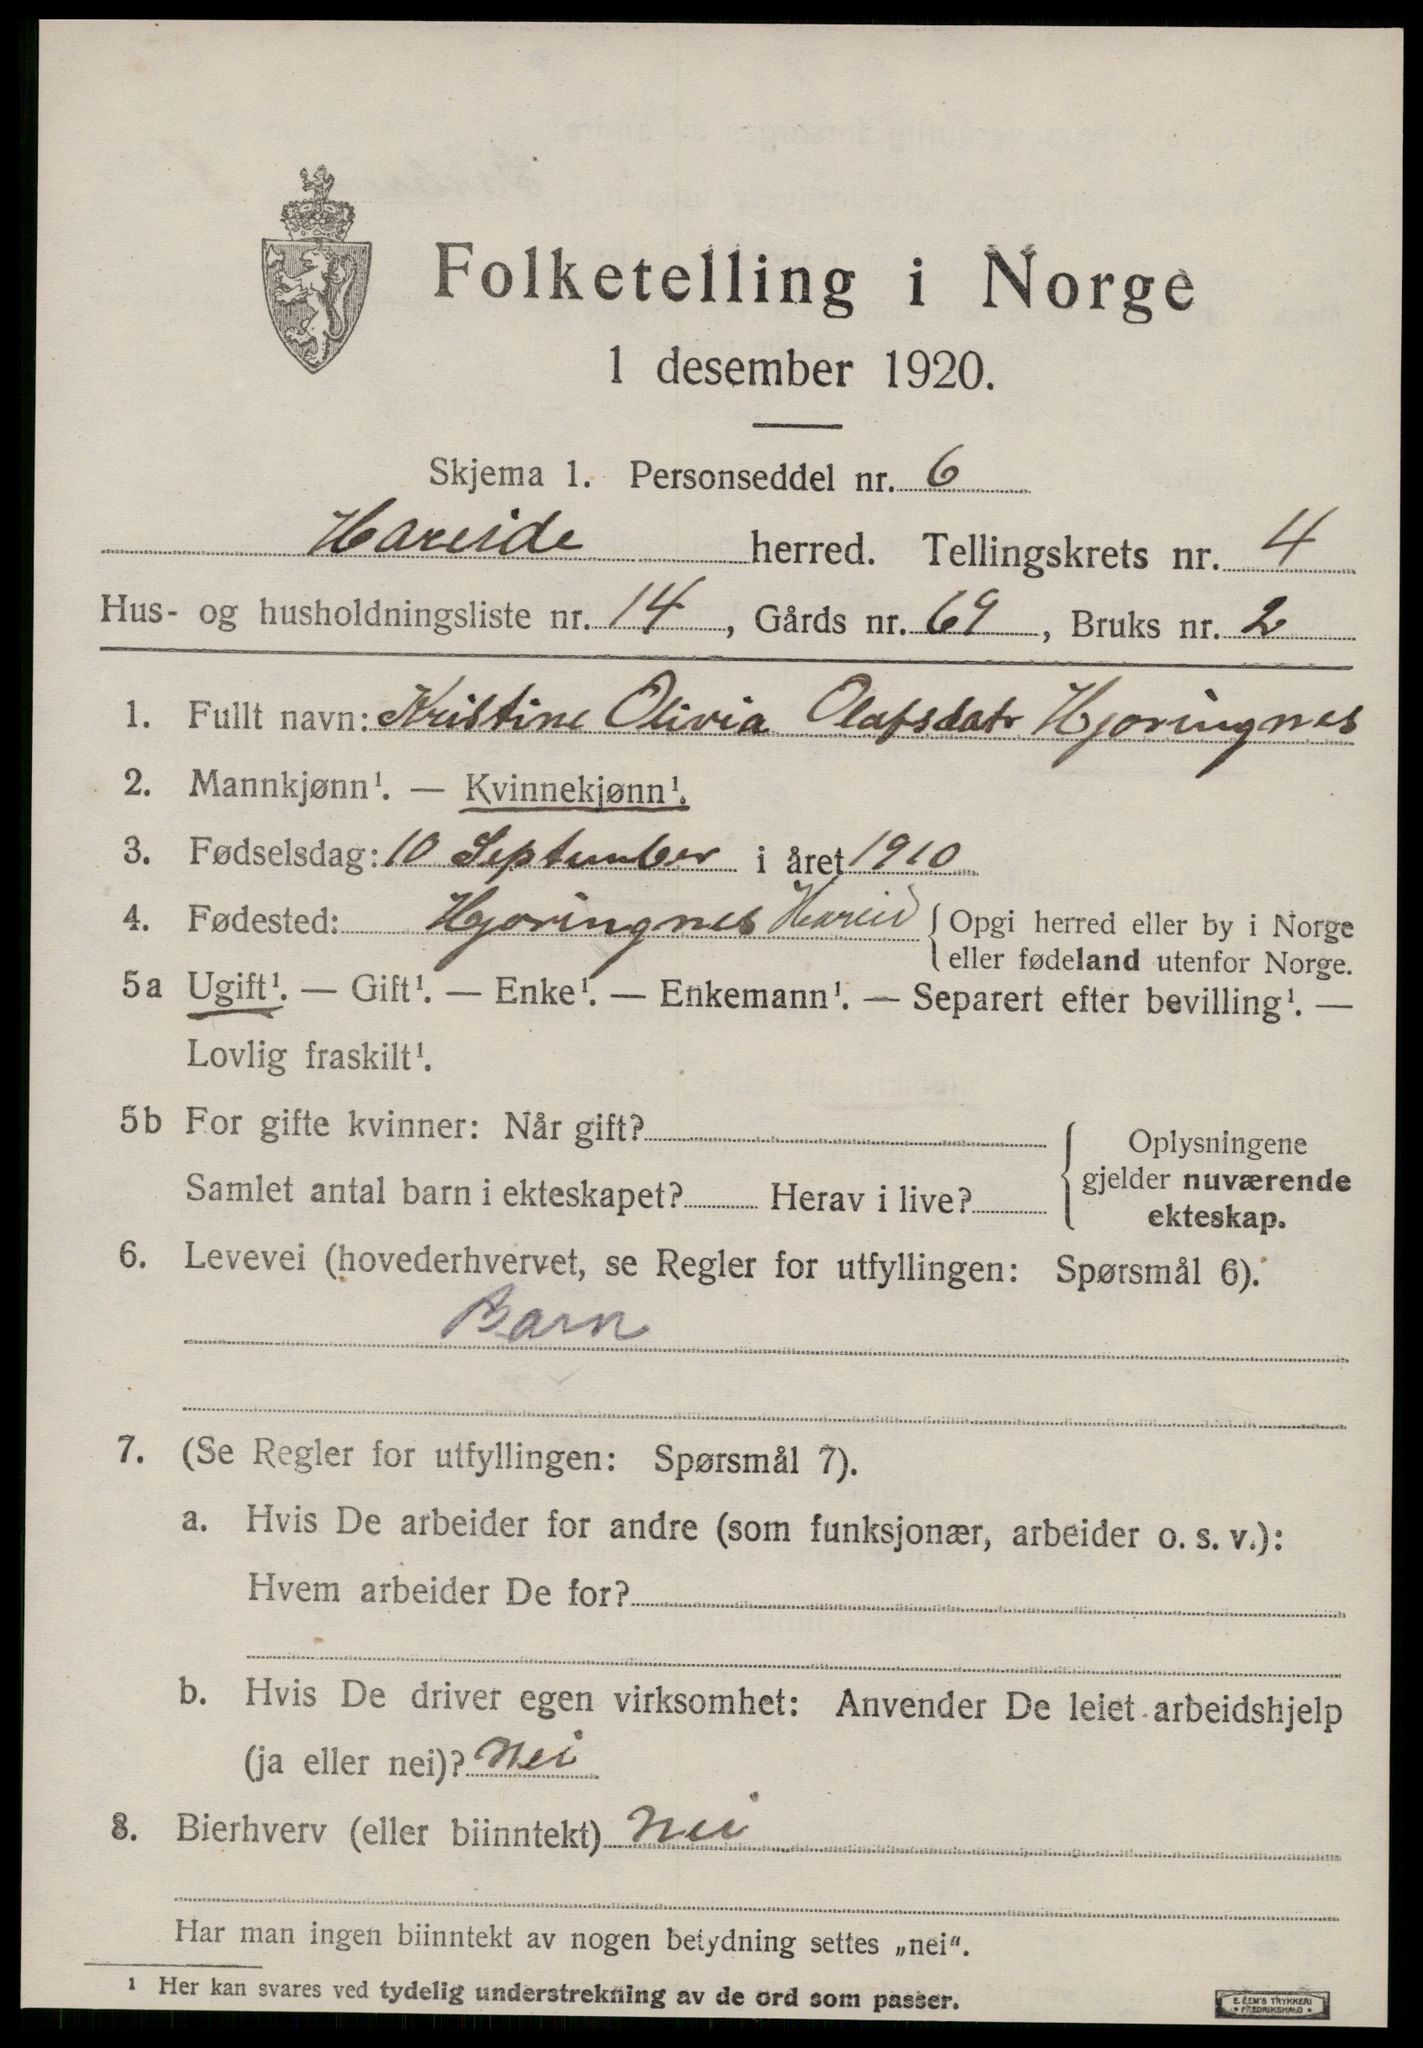 Folketelling i Norge
1 desember 1920.
Skjema 1. Personseddel nr. 6
Hareide herred. Tellingskrets nr. 4
Hus- og husholdningsliste nr. 14, Gårds nr. 69, Bruks nr. 2
1. Fullt navn: Kristine Olivia Olafsdatr Hjoringnes
2. Mannkjønn¹. — Kvinnekjønn¹.
3. Fødselsdag: 10 September i året 1910
4. Fødested: Hjoringnes Hareid { Opgi herred eller by i Norge
eller fødeland utenfor Norge.
5a Ugift¹. — Gift¹. — Enke¹. — Enkemann¹. — Separert efter bevilling¹. —
Lovlig fraskilt¹.
5b For gifte kvinner: Når gift?
Samlet antal barn i ekteskapet? Herav i live?
{ Oplysningene
gjelder nuværende
ekteskap.
6. Levevei (hovederhvervet, se Regler for utfyllingen: Spørsmål 6).
Barn
7. (Se Regler for utfyllingen: Spørsmål 7).
a. Hvis De arbeider for andre (som funksjonær, arbeider o. s. v.):
Hvem arbeider De for?
b. Hvis De driver egen virksomhet: Anvender De leiet arbeidshjelp
(ja eller nei)? nei
8. Bierhverv (eller biinntekt) nei
Har man ingen biinntekt av nogen betydning settes „nei“.
¹ Her kan svares ved tydelig understrekning av de ord som passer.
E. SEM'S TRYKKERI
FREDRIKSHALD